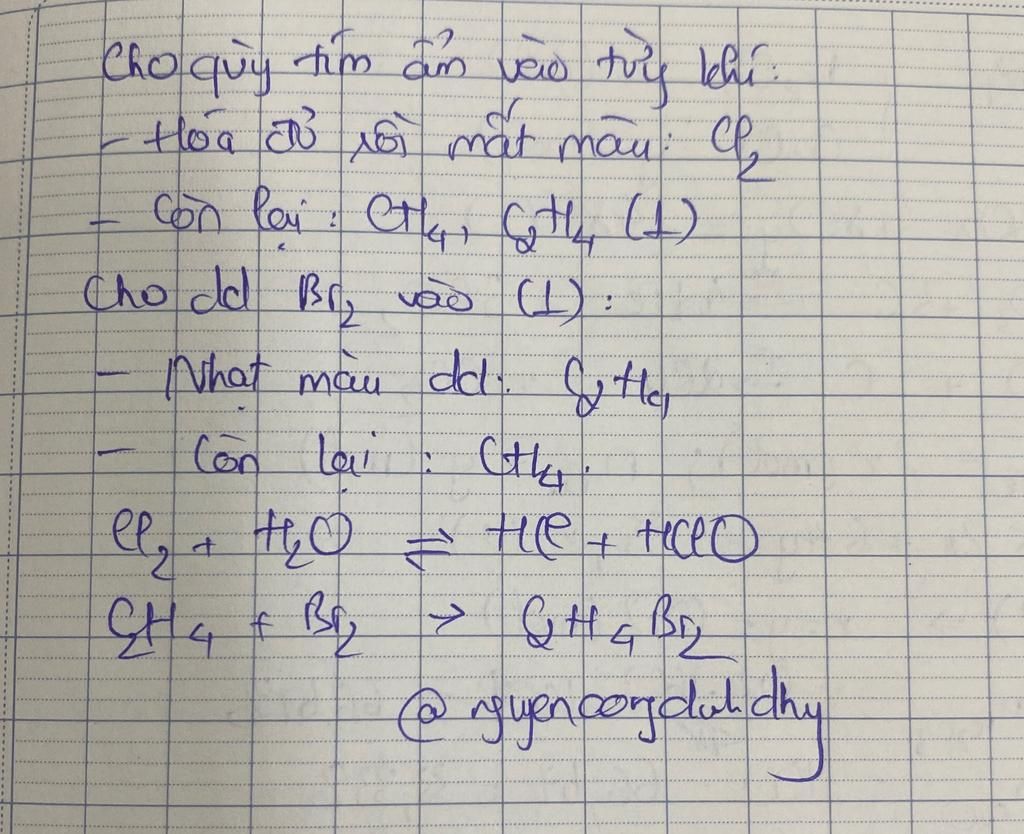 Cho quỳ tím ẩm vào từng khí:
- Hóa đỏ rồi mất màu: Cl₂
- Còn lại: CH₄, C₂H₄ (1)
Cho dd Br₂ vào (1):
- Nhạt màu dd: C₂H₄
- Còn lại: CH₄.
Cl₂ + H₂O ⇌ HCl + HClO
C₂H₄ + Br₂ → C₂H₄Br₂